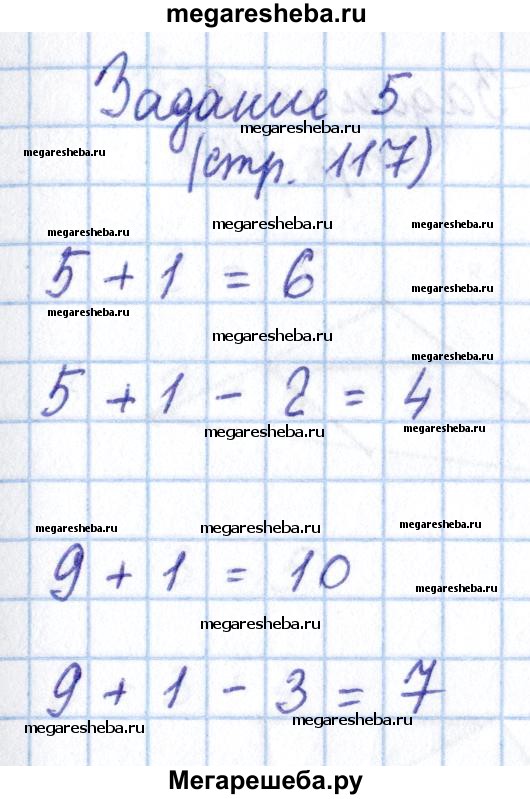 megaresheba.ru
Задание 5
megaresheba.ru
megaresheba.ru
megaresheba.ru
(стр. 117)
megaresheba.ru
megaresheba.ru
megaresheba.ru
5 + 1 = 6
megaresheba.ru
megaresheba.ru
megaresheba.ru
megaresheba.ru
5 + 1 - 2 = 4
megaresheba.ru
megaresheba.ru
megaresheba.ru
megaresheba.ru
megaresheba.ru
9 + 1 = 10
megaresheba.ru
megaresheba.ru
9 + 1 - 3 = 7
megaresheba.ru
megaresheba.ru
Мегарешеба.ру